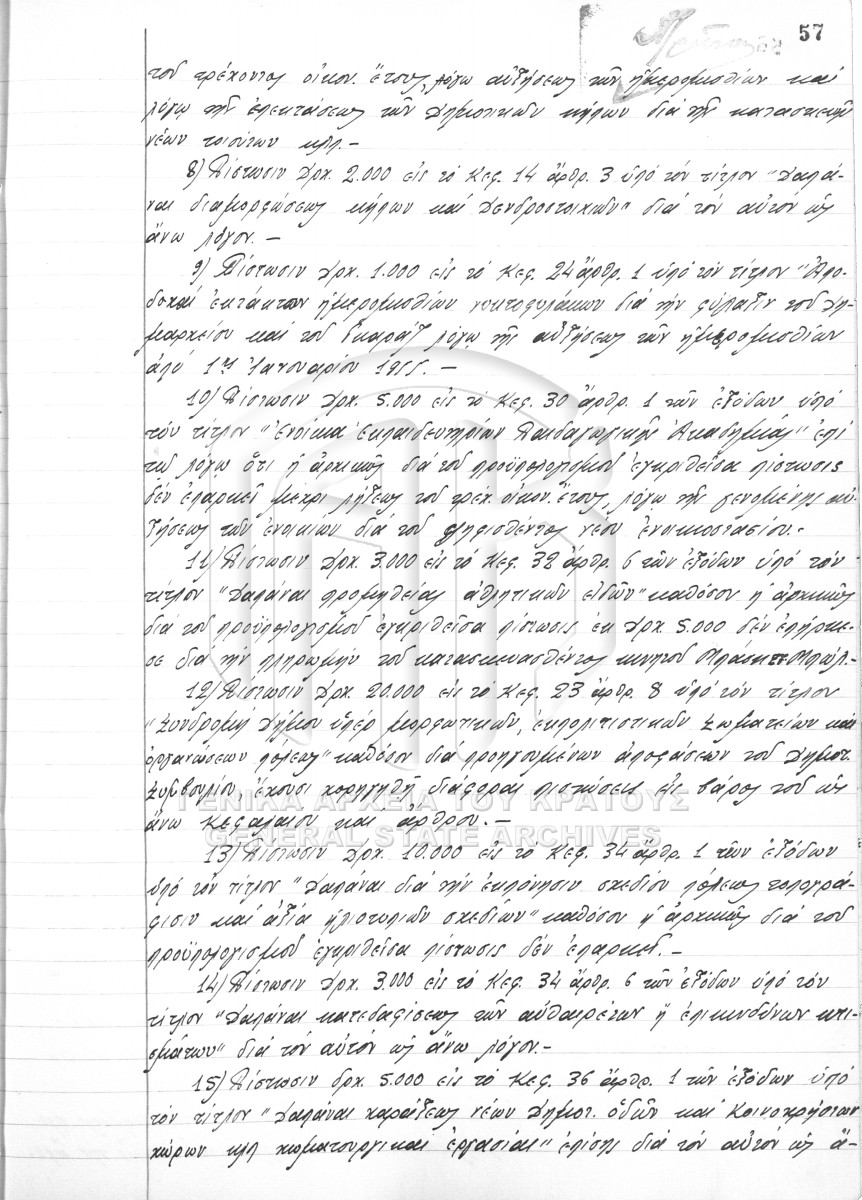 57
τοῦ τρέχοντος οἰκον. ἔτους, λόγῳ αὐξήσεως τῶν ἡμερομισθίων καί
λόγῳ τῆς ἐπεκτάσεως τῶν Δημοτικῶν κήπων διά τήν κατασκευήν
νέων τοιούτων κλπ.-
8) Πίστωσιν Δρχ. 2.000 εἰς τό Κεφ. 14 ἄρθρ. 3 ὑπό τόν τίτλον "Δαπά-
ναι διαμορφώσεως κήπων καί Δενδροστοιχιῶν" διά τόν αὐτόν ὡς
ἄνω λόγον.-
9) Πίστωσιν Δρχ. 1.000 εἰς τό Κεφ. 24 ἄρθρ. 1 ὑπό τόν τίτλον "Ἀπο-
δοχαί ἐκτάκτων ἡμερομισθίων νυκτοφυλάκων διά τήν φύλαξιν τοῦ Δη-
μαρχείου καί τοῦ Γκαράζ λόγῳ τῆς αὐξήσεως τῶν ἡμερομισθίων
ἀπό 1ης Ἰανουαρίου 1955.-
10) Πίστωσιν Δρχ. 5.000 εἰς τό Κεφ. 30 ἄρθρ. 1 τῶν ἐξόδων ὑπό
τόν τίτλον "ἐνοίκια ἐκπαιδευτηρίων Παιδαγωγικῆς Ἀκαδημίας" ἐπί
τῷ λόγῳ ὅτι ἡ ἀρχικῶς διά τοῦ προϋπολογισμοῦ ἐγκριθεῖσα πίστωσις
δέν ἐπαρκεῖ μέχρι λήξεως τοῦ τρέχ. οἰκον. ἔτους, λόγῳ τῆς γενομένης αὐ-
ξήσεως τῶν ἐνοικίων διά τοῦ ψηφισθέντος νέου ἐνοικιοστασίου.-
11) Πίστωσιν Δρχ. 3.000 εἰς τό Κεφ. 32 ἄρθρ. 6 τῶν ἐξόδων ὑπό τόν
τίτλον "Δαπάναι προμηθείας ἀθλητικῶν εἰδῶν" καθόσον ἡ ἀρχικῶς
διά τοῦ προϋπολογισμοῦ ἐγκριθεῖσα πίστωσις ἐκ Δρχ. 5.000 δέν ἐπήρκε-
σε διά τήν πληρωμήν τοῦ κατασκευασθέντος κινητοῦ Μπάσκετ-Μπώλ.-
12) Πίστωσιν Δρχ. 20.000 εἰς τό Κεφ. 23 ἄρθρ. 8 ὑπό τόν τίτλον
"Συνδρομή Δήμου ὑπέρ μορφωτικῶν, ἐκπολιτιστικῶν Σωματείων καί
ὀργανώσεων πόλεως" καθόσον διά προηγουμένων ἀποφάσεων τοῦ Δημοτ.
Συμβουλίου, ἔχουσι χορηγηθῆ διάφοραι πιστώσεις εἰς βάρος τοῦ ὡς
ἄνω Κεφαλαίου καί ἄρθρου.-
ΓΕΝΙΚΑ ΑΡΧΕΙΑ ΤΟΥ ΚΡΑΤΟΥΣ
GENERAL STATE ARCHIVES
13) Πίστωσιν Δρχ. 10.000 εἰς τό Κεφ. 34 ἄρθρ. 1 τῶν ἐξόδων
ὑπό τόν τίτλον "Δαπάναι διά τήν ἐκπόνησιν σχεδίου πόλεως τοπογρά-
φισιν καί ἀξία ἡλιοτυπιῶν σχεδίων" καθόσον ἡ ἀρχικῶς διά τοῦ
προϋπολογισμοῦ ἐγκριθεῖσα πίστωσις δέν ἐπαρκεῖ.-
14) Πίστωσιν Δρχ. 3.000 εἰς τό Κεφ. 34 ἄρθρ. 6 τῶν ἐξόδων ὑπό τόν
τίτλον "Δαπάναι κατεδαφίσεως τῶν αὐθαιρέτων ἤ ἐπικινδύνων κτι-
σμάτων" διά τόν αὐτόν ὡς ἄνω λόγον.-
15) Πίστωσιν δρχ. 5.000 εἰς τό Κεφ. 36 ἄρθρ. 1 τῶν ἐξόδων ὑπό
τόν τίτλον "Δαπάναι χαράξεως νέων Δημοτ. ὁδῶν καί Κοινοχρήστων
χώρων κλπ χωματουργικαί ἐργασίαι" ἐπίσης διά τόν αὐτόν ὡς ἄ-